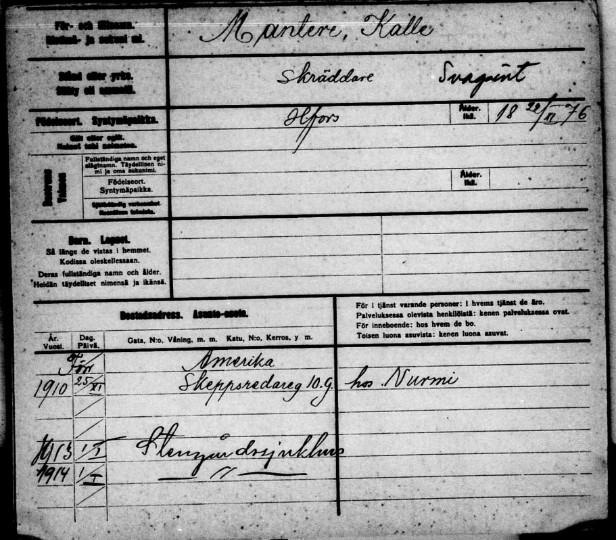 För- och tillnamn. Mantere, Kalle
Ristimä- ja sukuni mi.
Stånd eller yrke. Skräddare
Sääty eli ammatti.
Födelseort. Syntymäpaikka. Hfors Ålder. Ikä. 18 76
Gift eller ogift.
Fullständiga namn och eget
släktnamn. Täydellinen ni-
mi ja oma sukunimi.
Födelseort.
Syntymäpaikka.
Ålder.
Ikä.
Barn. Lapset.
Så länge de vistas i hemmet.
Kodissa oleskellessaan.
Deras fullständiga namn och ålder.
Heidän täydelliset nimensä ja ikänsä.
Bostadsadress. Asunto-osote.
För i tjänst varande personer: I hvems tjänst de äro.
Palveluksessa olevista henkilöistä: kenen palveluksessa ovat.
För inneboende: hos hvem de bo.
Toisen luona asuvista: kenen luona asuvat.
År. Vuosi. Dag. Päivä. Gata, N:o, Våning, m. m. Katu, N:o, Kerros, y m.
Förr Amerika
1910 25/XI Skeppsredareg 10.g. hos Nurmi
1913 1/I Stengårdssjukhus
1914 1/I — " —